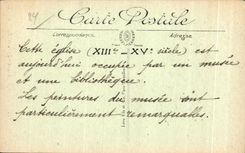 24
Carte Postale
Correspondance
Adresse
Cette église (XIIIe - XVe siècle) est
aujourd'hui occupée par un musée
et une bibliothèque.
Les peintures du musée sont
particulièrement remarquables.